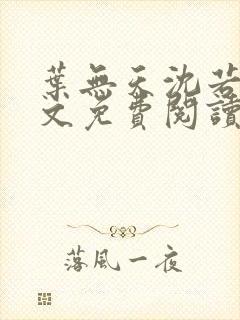 葉無天沈若
文免費閱讀
落風一夜